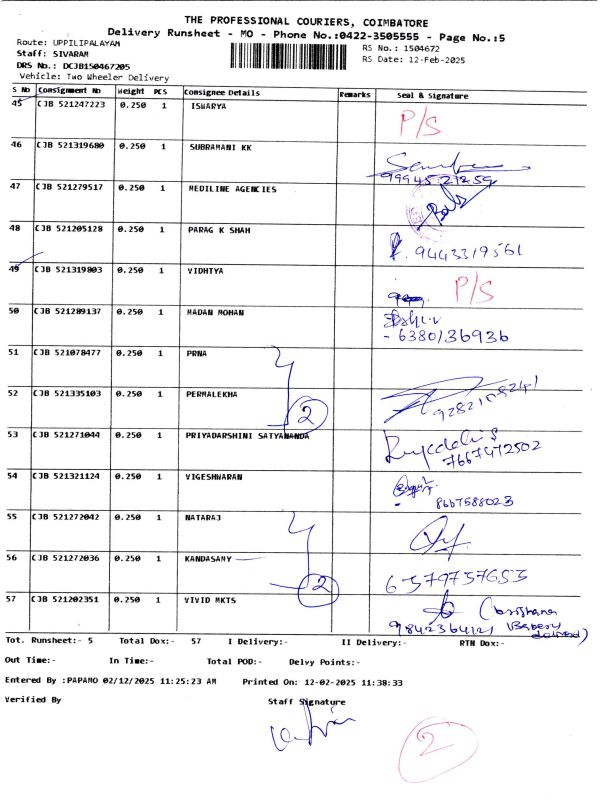 THE PROFESSIONAL COURIERS, COIMBATORE
Delivery Runsheet - MO - Phone No.:0422-3505555 - Page No.:5
Route: UPPILIPALAYAM
RS No. : 1504672
Staff: SIVARAM
RS Date: 12-Feb-2025
DRS No.: DCJB150467205
Vehicle: Two Wheeler Delivery
S No Consignment No Weight PCS Consignee Details Remarks Seal & Signature
45 CJB 521247223 0.250 1 ISWARYA P/S
46 CJB 521319680 0.250 1 SUBRAMANI KK 9994521259
47 CJB 521279517 0.250 1 MEDILINE AGENCIES
48 CJB 521205128 0.250 1 PARAG K SHAH 9443319561
49 CJB 521319803 0.250 1 VIDHTYA P/S
50 CJB 521289137 0.250 1 MADAN MOHAN
- 6380136936
51 CJB 521078477 0.250 1 PRNA
52 CJB 521335103 0.250 1 PERMALEKHA 2
53 CJB 521271044 0.250 1 PRIYADARSHINI SATYANANDA
7667472502
54 CJB 521321124 0.250 1 VIGESHWARAN
- 8667588023
55 CJB 521272042 0.250 1 NATARAJ
56 CJB 521272036 0.250 1 KANDASAMY 2 6579757653
57 CJB 521202351 0.250 1 VIVID MKTS
9842364121
Tot. Runsheet:- 5 Total Dox:- 57 I Delivery:- II Delivery:- RTN Dox:-
Out Time:- In Time:- Total POD:- Delvy Points:-
Entered By :PAPAMO 02/12/2025 11:25:23 AM Printed On: 12-02-2025 11:38:33
Verified By Staff Signature
2